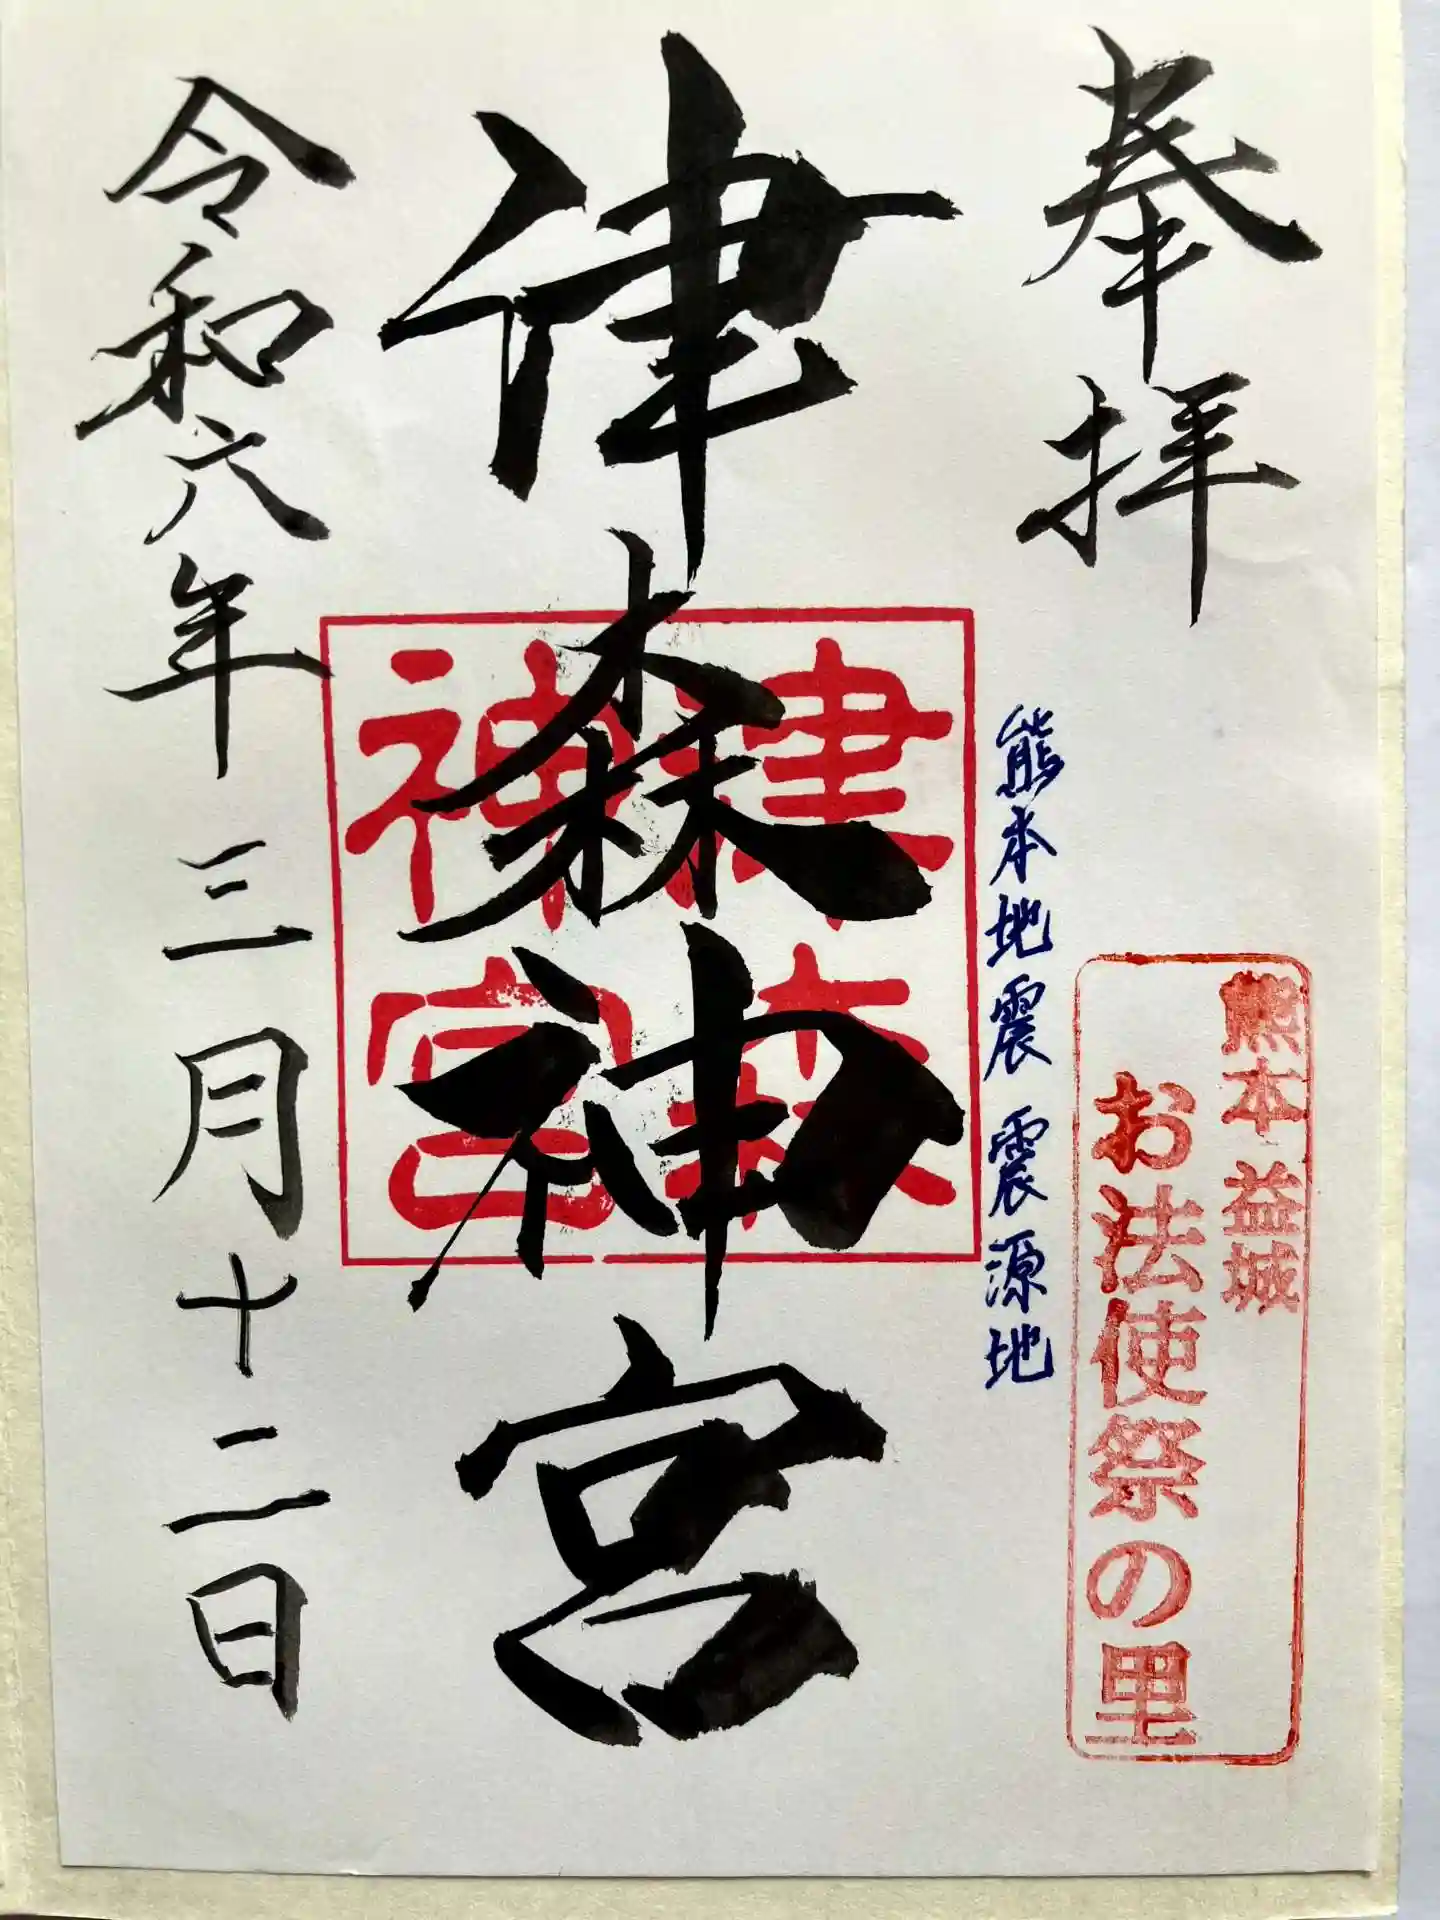 奉拝
熊本 益城
お法使祭の里
熊本地震震源地
津森神宮
津森
神宮
令和六年三月十二日